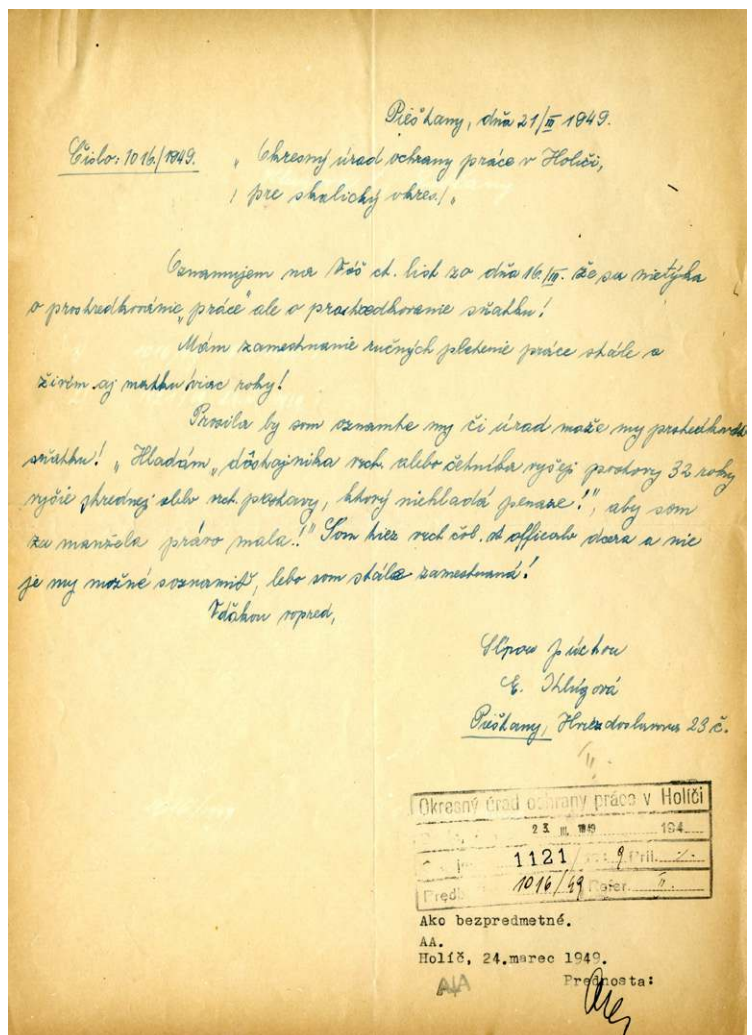 Piešťany, dňa 21/III 1949.
Číslo: 1016./1949. „Okresný úrad ochrany práce v Holíči,
/ pre skalický okres/„
Oznamujem na Váš ct. list zo dňa 16./III. že sa nietýka
o prostredkovánie „práce" ale o prostredkovanie sňatku!
Mám zamestnanie ručných pletenie práce stále a
živím aj matku viac roky!
Prosila by som oznamte my či úrad može my
sňatku! „Hladám „dôstojnika alebo četníka vyšej postovy 32 roky
vyšie strednej alebo postavy, ktorý niehladá penaze!", aby som
za manžela právo mala!" Som dcera a nie
je my možné soznamiť, lebo som stále zamestnaná!
Vďakou vopred,
S úctou
E.
Piešťany, 23 č.
II.
Okresný úrad ochrany práce v Holíči
23. III. 1949 194
1121 / 9 Príl. -/-
Predb. 1016/49 Refer. II.
Ako bezpredmetné.
AA.
Holíč, 24.marec 1949.
Prednosta:
A/A